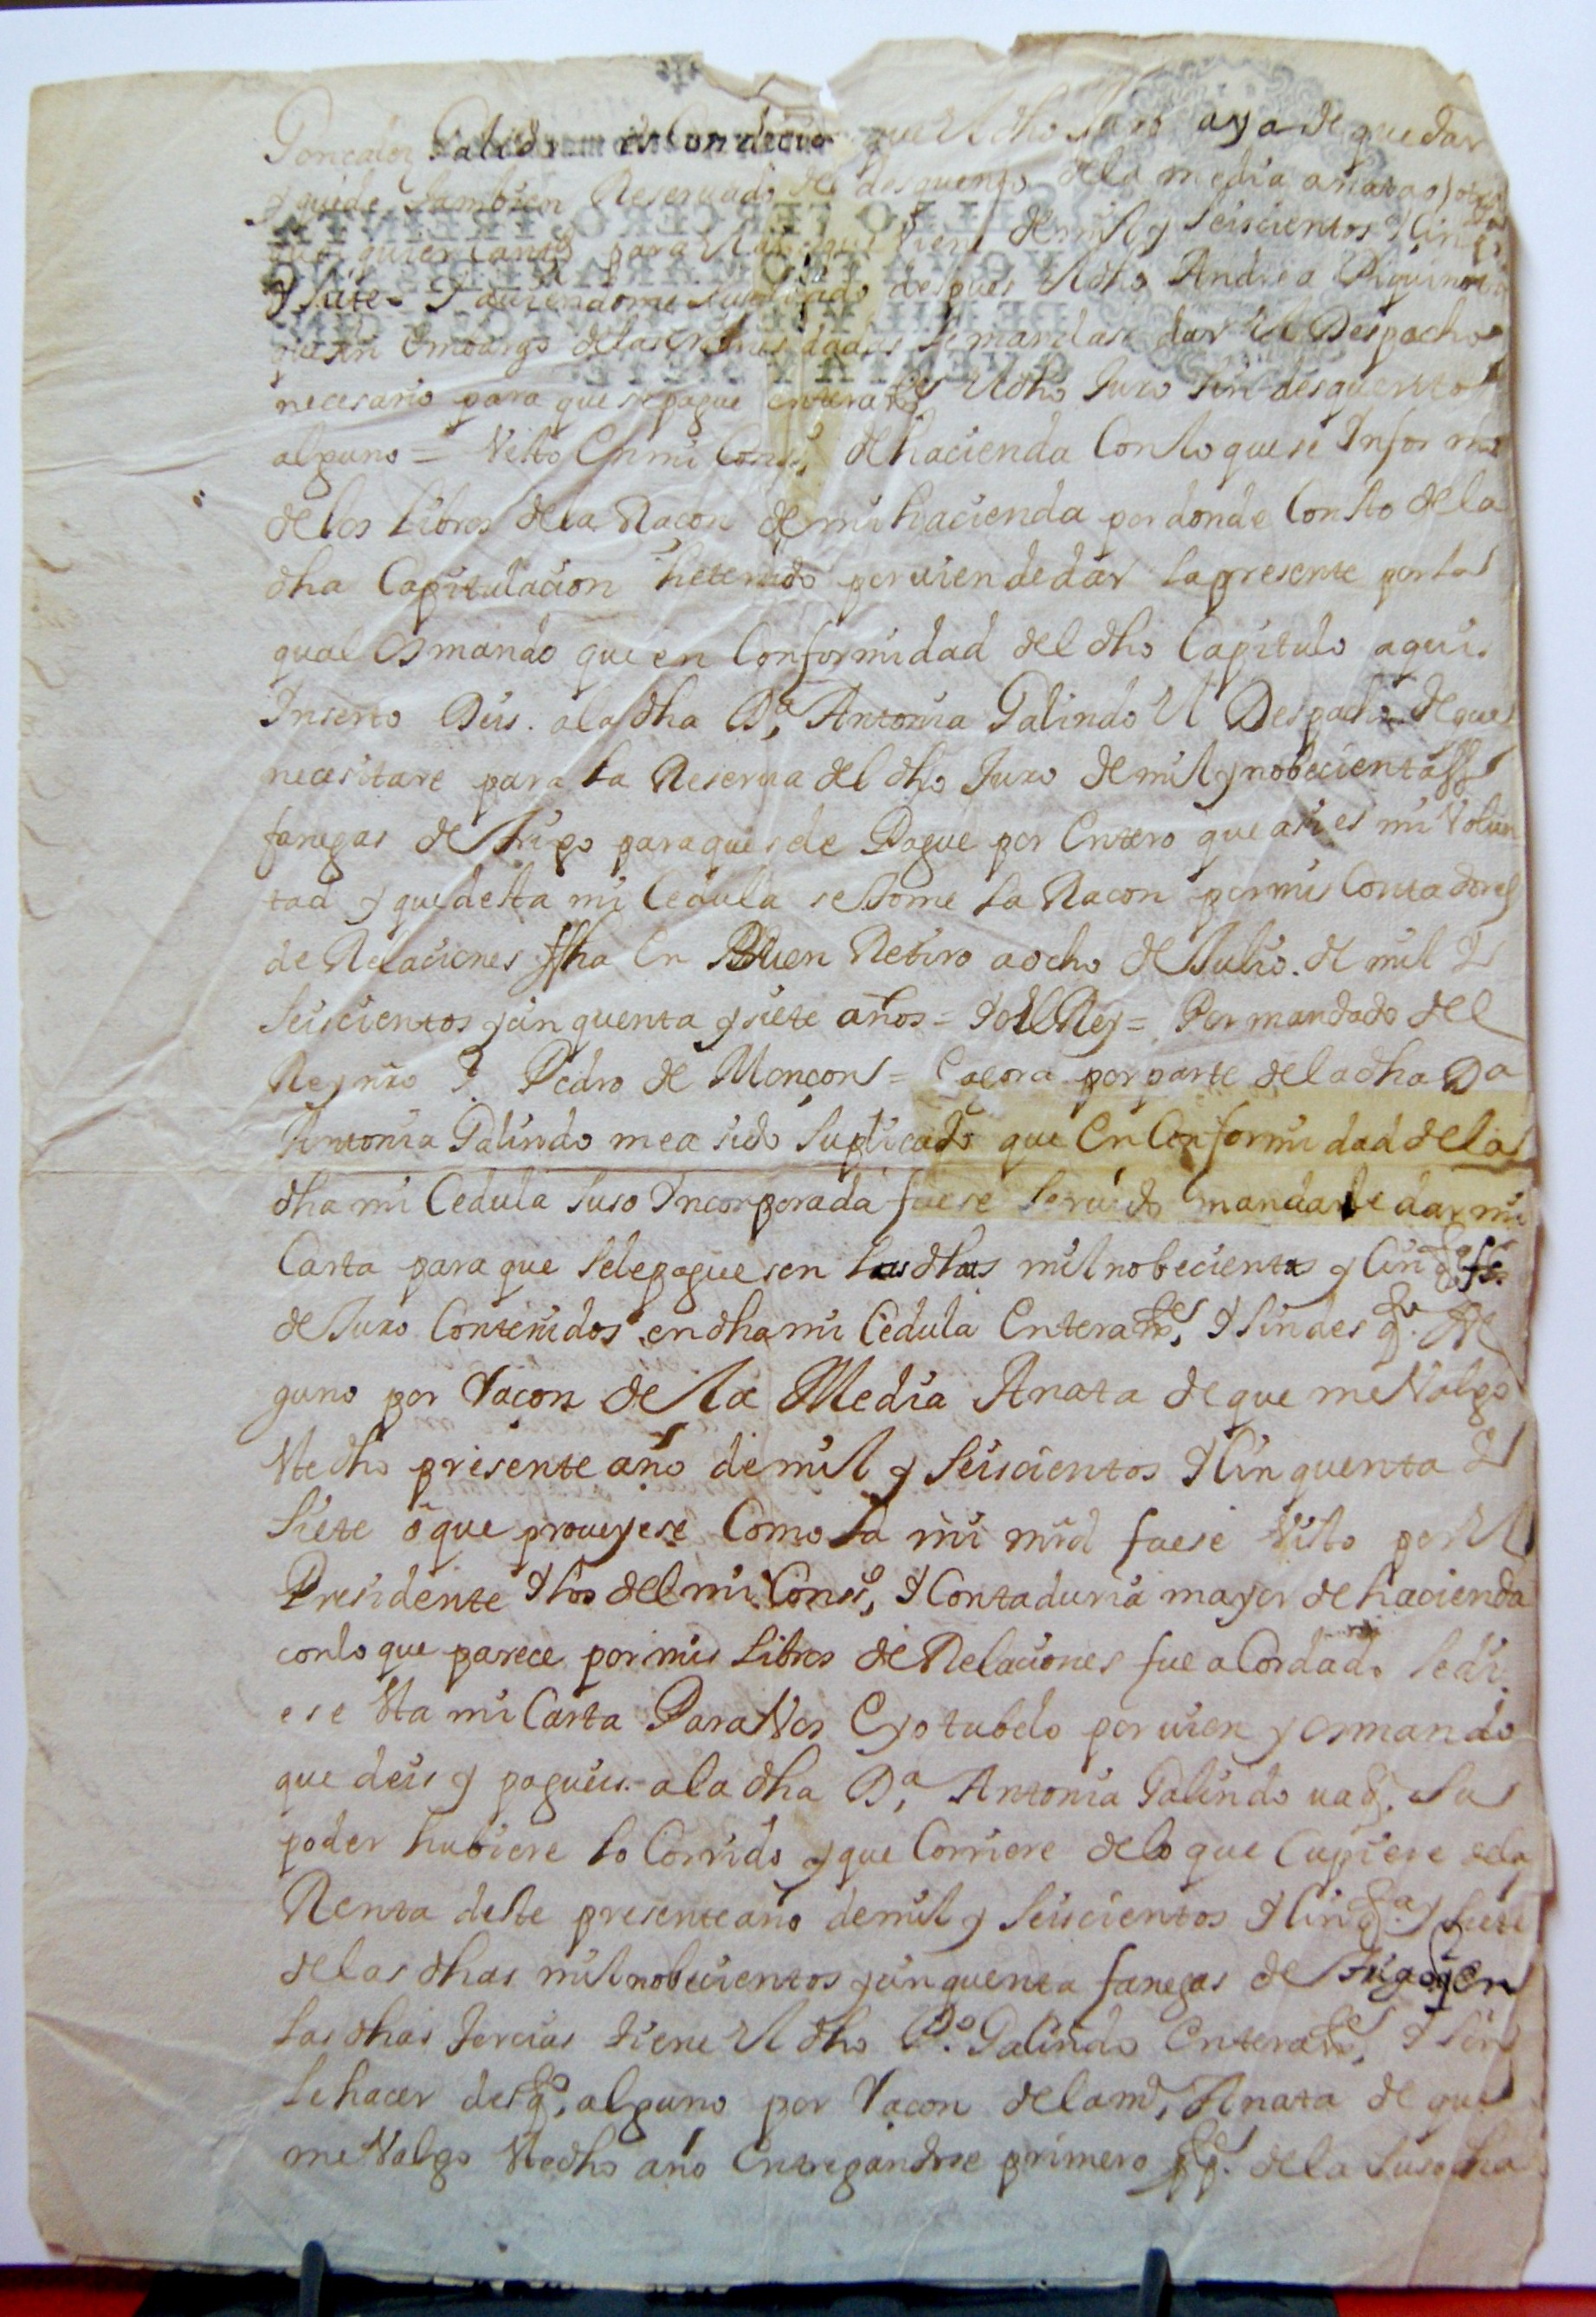 Gonçalez Galindo es Condicion que el dho Juro aya de quedar
y quede tambien Reseruado del desquento dela media anata o otro
qualquier tanto para el año que viene de mil y seiscientos y cinq.ta
y siete - Y auiendome suplicado despues el dho Andrea Piquinoti
que sin Embargo delas ordenes dadas se mandase dar el Despacho
necesario para que se pague entera.te el dho Juro sin desquento
alguno = Visto En mi Cons.o de hacienda Con lo que se Informo
de los libros dela Raçon de mi hacienda por donde Consto dela
dha Capitulacion he tenido por uien de dar la presente por la
qual os mando que en Conformidad del dho Capitulo aqui
Inserto Deis. a la dha D.a Antonia Galindo el Despacho de que
necesitare para la Reserua del dho Juro de mil y nobecientas
fanegas de trigo para que se le Pague por Entero que asi es mi Volun
tad y que desta mi Cedula se tome la Raçon por mis Contadores
de Relaciones ffha En Buen Retiro a ocho de Julio. de mil y
seiscientos y cinquenta y siete años = Yo el Rey = Por mandado del
Rey nro S.r Pedro de Monçon = E agora por parte dela dha Da
Antonia Galindo me a sido suplicado que En Conformidad dela
dha mi Cedula suso Incorporada fuese seruido mandarle dar mi
Carta para que se le paguesen las dhas mil nobecientas y cinq.ta fs.
de Juro Contenidos en dha mi Cedula Entera.te, y sin desq.to Al
guno por raçon de la Media Anata de que me Valgo
Este dho presente año de mil y seiscientos y cinquenta y
siete o que proueyese Como la mi mrd fuese Visto por el
Presidente y los del mi Cons.o, y Contaduria mayor de hacienda
con lo que parece por mis libros de Relaciones fue aCordado se di
ese Esta mi Carta Para Vos E yo tubelo por uien y os mando
que deis y pagueis. a la dha D.a Antonia Galindo u a q. su
poder hubiere lo Corrido y que Corriere de lo que Cupiere ela
Renta deste presente año de mil y seiscientos y cinq.ta y siete
de las dhas mil nobecientos y cinquenta fanegas de trigo q en
las dhas tercias tiene el dho D.o Galindo Entera.te, y sin
le hacer desq.to, alguno por raçon de la m.a, Anata de que
me Valgo Este dho año Entregandose primero de la suso dha